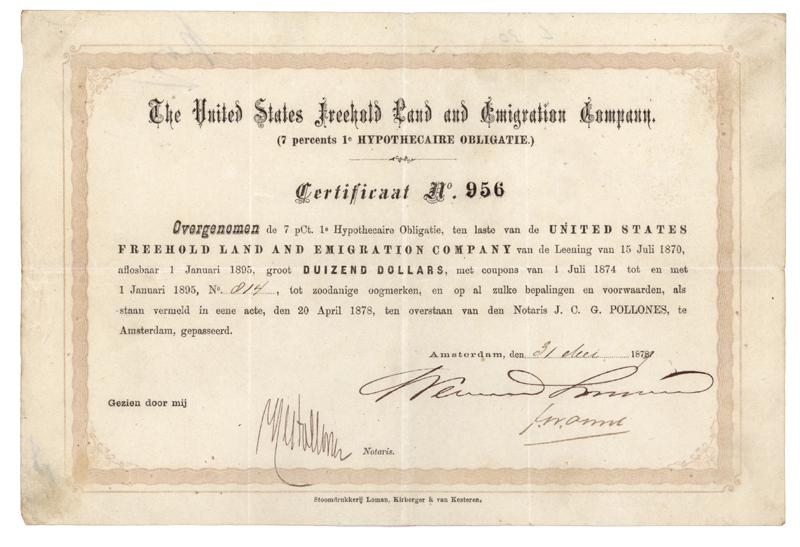 The United States Freehold Land and Emigration Company.
(7 percents 1e HYPOTHECAIRE OBLIGATIE.)
Certificaat No. 956
Overgenomen de 7 pCt. 1e Hypothecaire Obligatie, ten laste van de UNITED STATES
FREEHOLD LAND AND EMIGRATION COMPANY van de Leening van 15 Juli 1870,
aflosbaar 1 Januari 1895, groot DUIZEND DOLLARS, met coupons van 1 Juli 1874 tot en met
1 Januari 1895, No. 814, tot zoodanige oogmerken, en op al zulke bepalingen en voorwaarden, als
staan vermeld in eene acte, den 20 April 1878, ten overstaan van den Notaris J. C. G. POLLONES, te
Amsterdam, gepasseerd.
Amsterdam, den 31 Mei 187
Gezien door mij
Notaris.
Stoomdrukkerij Loman, Kirberger & van Kesteren.